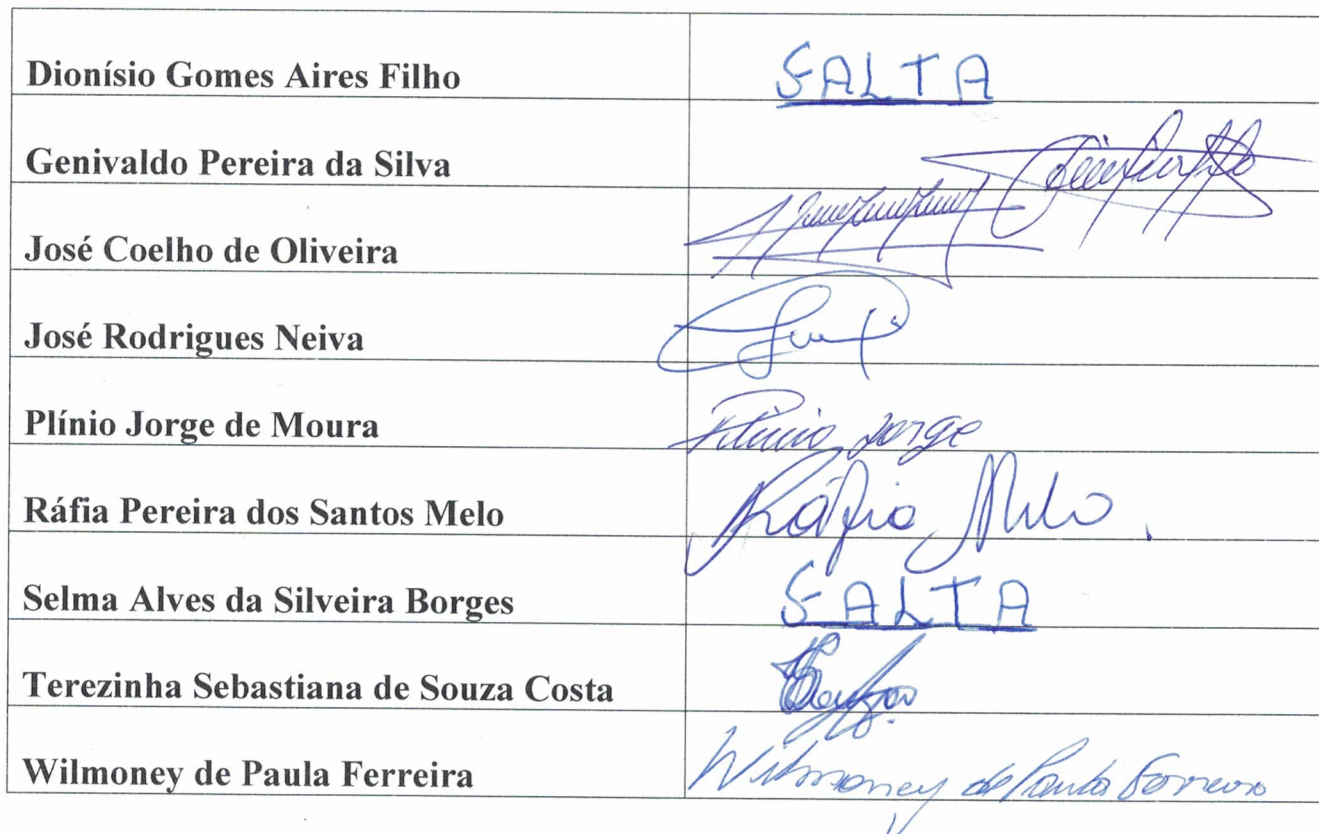 Dionísio Gomes Aires Filho FALTA
Genivaldo Pereira da Silva
José Coelho de Oliveira
José Rodrigues Neiva
Plínio Jorge de Moura Plínio Jorge
Ráfia Pereira dos Santos Melo Ráfia Melo
Selma Alves da Silveira Borges FALTA
Terezinha Sebastiana de Souza Costa
Wilmoney de Paula Ferreira Wilmoney de Paula Ferreira